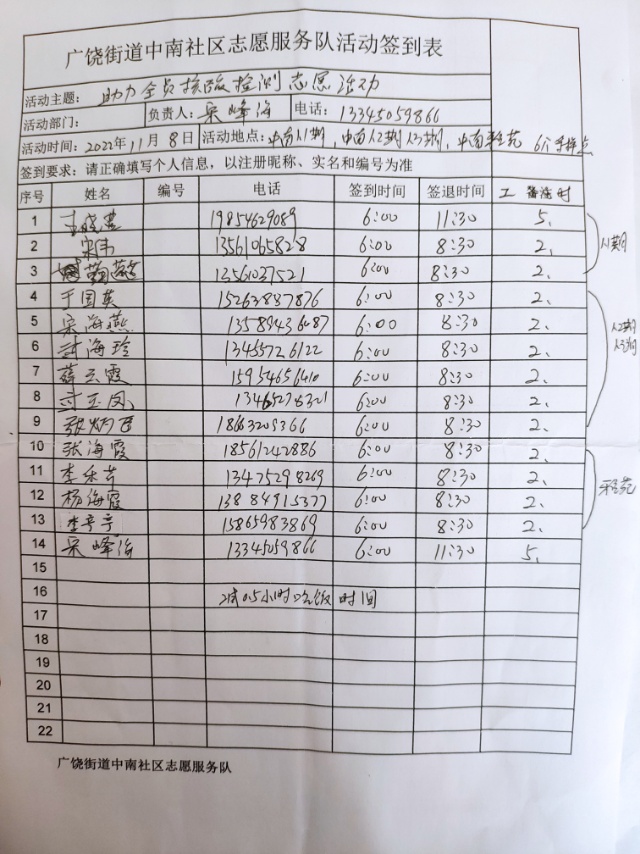 广饶街道中南社区志愿服务队活动签到表
活动主题： 助力全员核酸检测志愿活动
活动部门： 负责人：宋峰海 电话：13345059866
活动时间：2022年11月8日 活动地点：中南人1期，中南人2期人3期，中南 苑 6个采样点
签到要求：请正确填写个人信息，以注册昵称、实名和编号为准
序号 姓名 编号 电话 签到时间 签退时间 工 备注 时
1 19854629089 6:00 11:30 5、 人1期
2 宋伟 13561065828 6:00 8:30 2、
3 13561037521 6:00 8:30 2、
4 于国英 15263887876 6:00 8:30 2、
5 宋海燕 13589436487 6:00 8:30 2、 人2期
6 海珍 13455726122 6:00 8:30 2、 人3期
7 薛云霞 15954656410 6:00 8:30 2、
8 13465278321 6:00 8:30 2、
9 18663209366 6:00 8:30 2、
10 张海霞 18561242886 6:00 8:30 2、
11 李乐芹 13475298269 6:00 8:30 2、
12 杨海霞 13884915377 6:00 8:30 2、 苑
13 15865983869 6:00 8:30 2、
14 宋峰海 13345059866 6:00 11:30 5、
15
16 减0.5小时吃饭时间
17
18
19
20
21
22
广饶街道中南社区志愿服务队